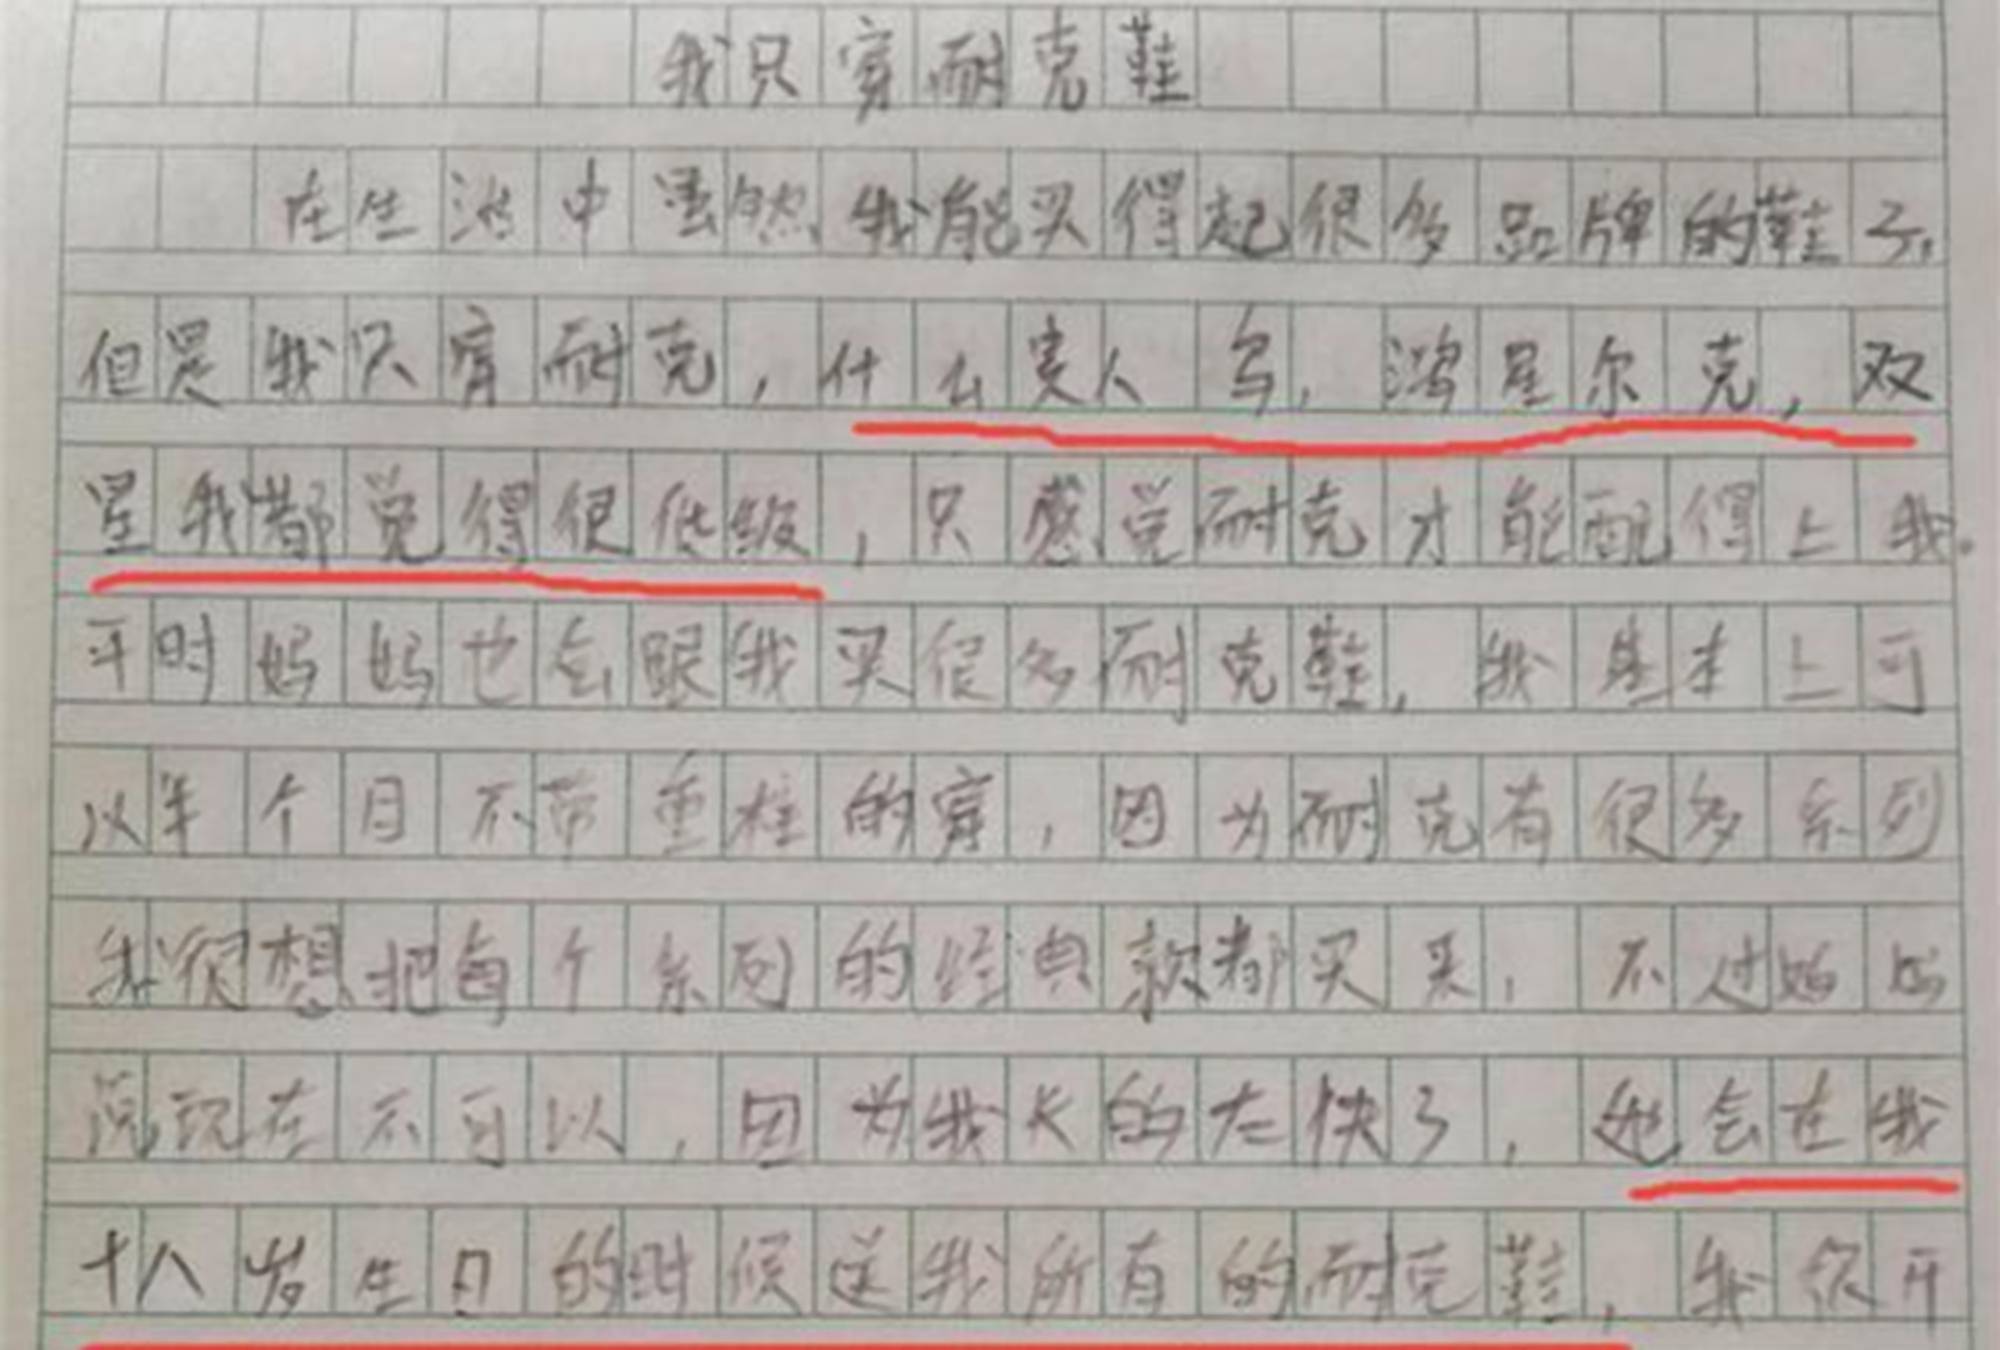 我只穿耐克鞋
在生活中虽然我能买得起很多品牌的鞋子,
但是我只穿耐克,什么贵人鸟,鸿星尔克,双
星我都觉得很低级,只感觉耐克才能配得上我。
平时妈妈也会跟我买很多耐克鞋,我基本上可
以半个月不带重样的穿,因为耐克有很多系列
我很想把每个系列的经典款都买来,不过妈妈
说现在不可以,因为我长的太快了,她会在我
十八岁生日的时候送我所有的耐克鞋,我很开